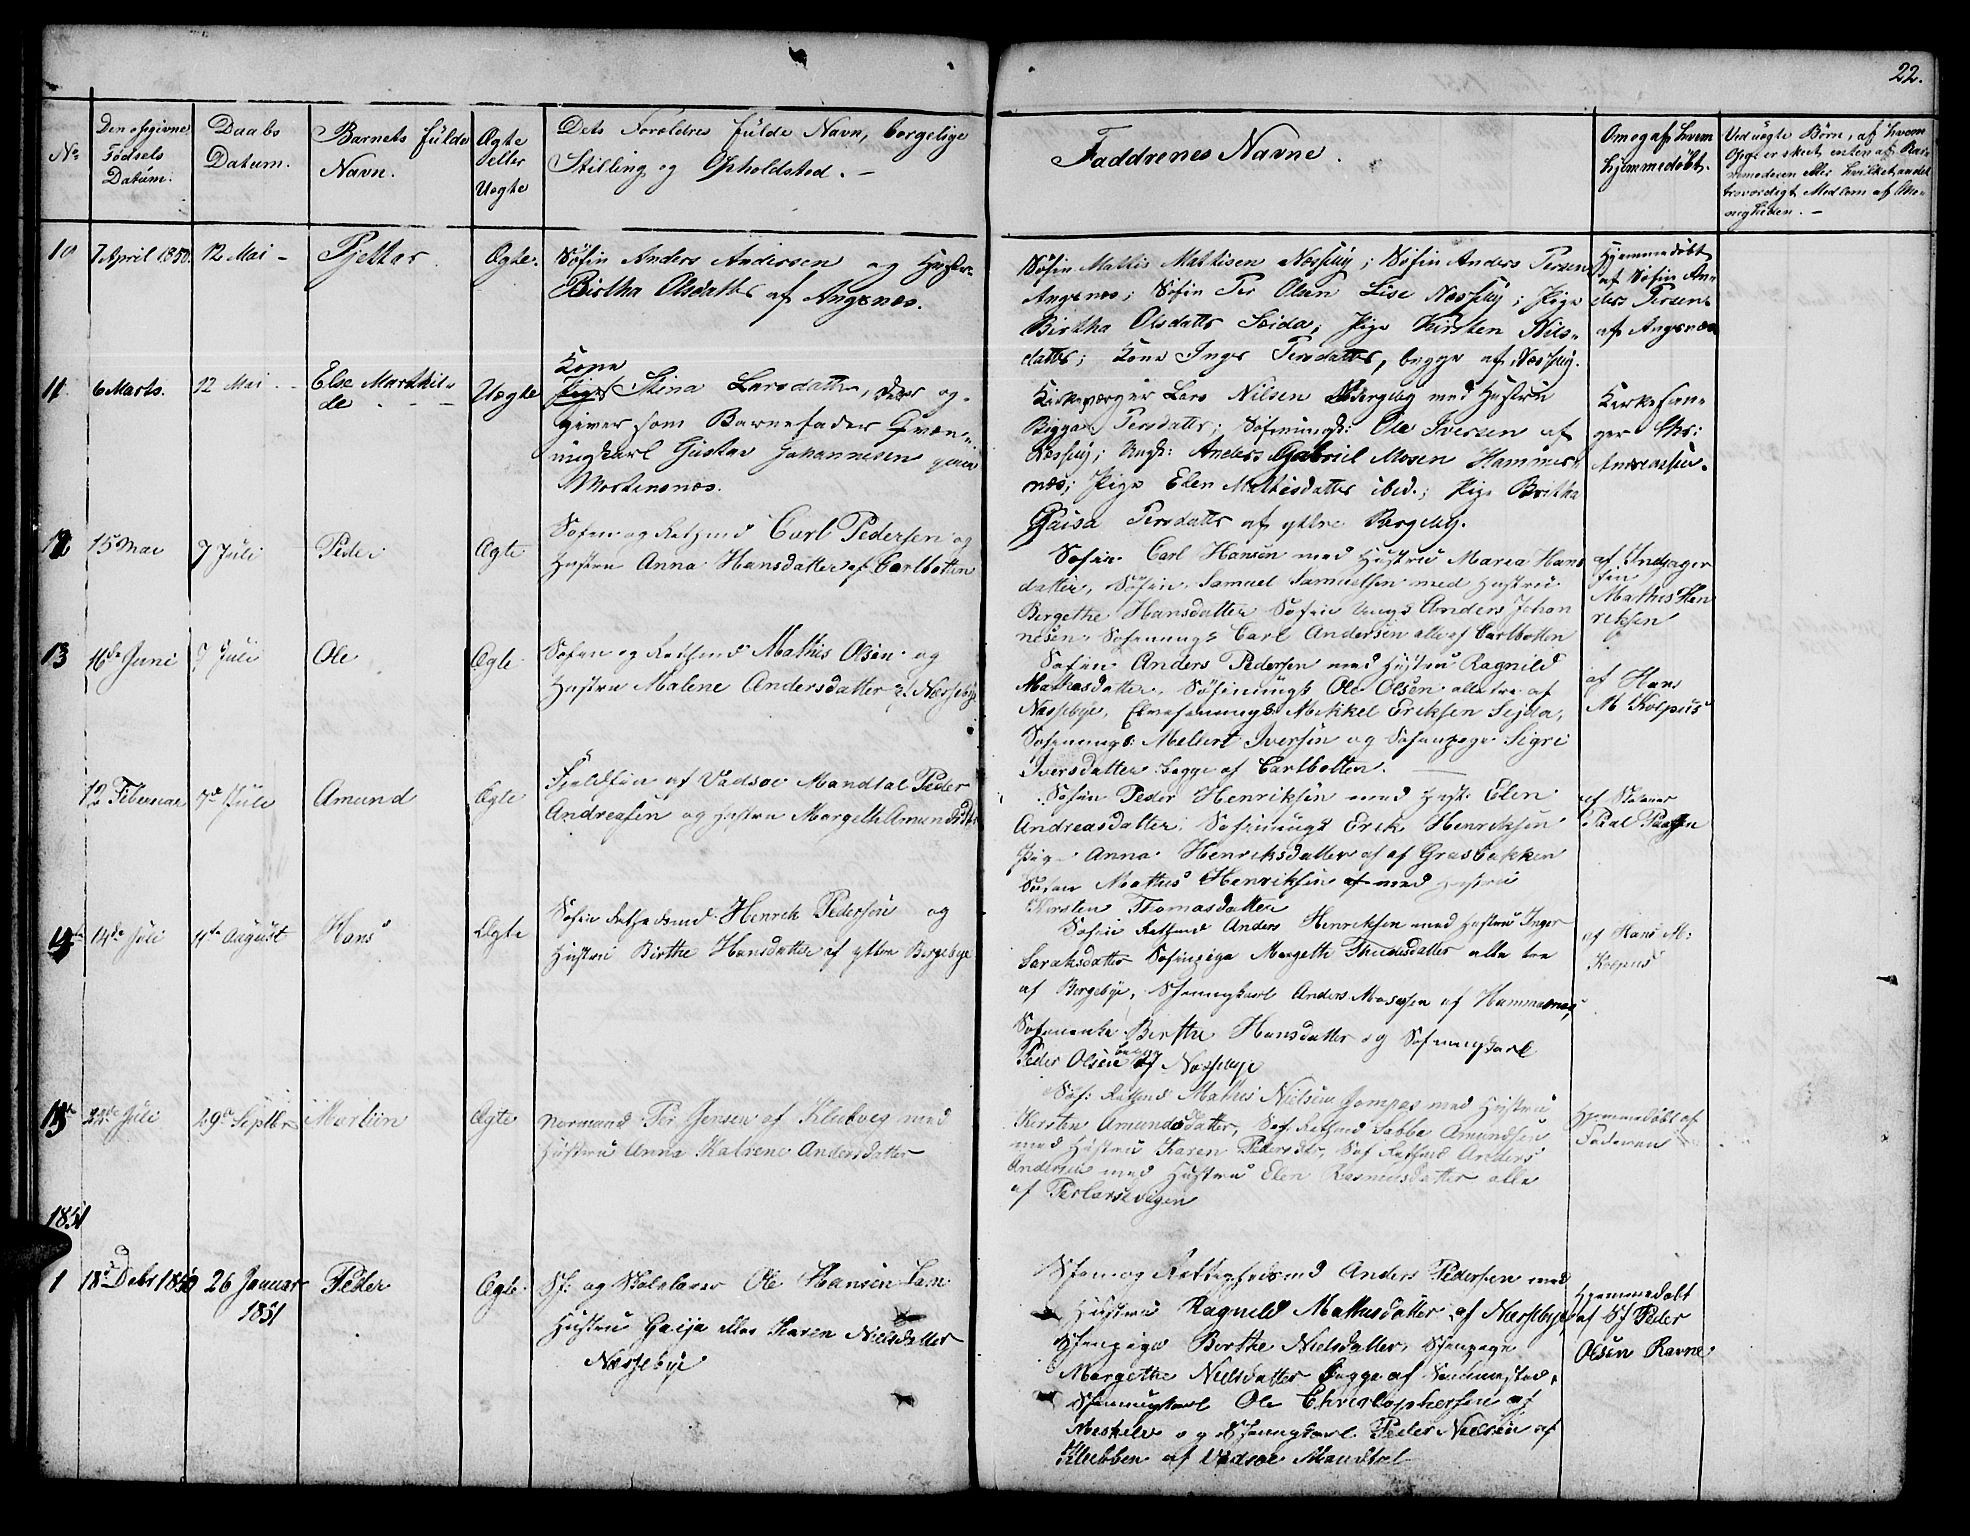 22.
No
Den opgivne
Fødsels
Datum.
Daabs
Datum.
Barnets fulde
Navn.
Ægte
eller
Uægte
Dets Forældres fulde Navn, borgelige
Stilling og Opholdsted. —
Faddrenes Navne.
Om og af hvem
hjemmedøbt.
Ved uægte Børn, af hvem
Opgr er skeet, enten af Bar-
nemoderen eller hvilket andet
troværdigt Medlem af Me-
nigheden. —
10
7 April 1850.
12 Mai —
Pjettar
Ægte.
Søfin Anders Andersen og Hustru
Birtha Olsdatter af Angsnæs.
Søfin Mattis Mathisen Næsseby; Søfin Anders Persen
Angsnæs; Søfin Per Olsen Lise Næsseby; Pige
Birtha Olsdatter Seida; Pige Kirsten Nils-
datter; Kone Inger Persdatter, begge af Næsseby.
Hjemmedøbt
af Søfin An-
ders Persen
af Angsnæs
11
6 Marts.
12 Mai
Else Marthil-
de
Uægte
Kone
Pige Stina Larsdatter, der op-
giver som Barnefader Qvæn-
ungkarl Gustav Johannesen
Mortensnæs.
Kirkeværger Lars Nilsen Bergeby med Hustru
Bigga Persdatter; Søfinungk: Ole Iversen af
Næsseby; Ungk: Anders Gabriel Mosen Hammer-
næs; Pige Elen Mathisdatter ibid.; Pige Britha
Gaisa Persdatter af yttre Bergeby.
Kirkesan-
ger Chr:
Andreassen.
12
15 Mai
7 Juli
Peder
Ægte
Søfin og Retsmd Carl Pedersen og
Hustru Anna Hansdatter af Carlbotten
Søfin Carl Hansen med Hustru Marea Hans
datter, Søfin Samuel Samuelsen med Hustru
Bergethe Hansdatter Søfin Ungk Anders Johan
nesen, Søfinungk Carl Andersen alle af Carlbotten
af Indjager
fin
Mathis Hen
riksen
13
16de Juni
7 Juli
Ole
Ægte
Søfin og Retsmd Mathis Olsen og
Hustru Malene Andersdatter af Næssebye
Søfin Anders Pedersen med Hustru Ragnild
Mathisdatter, Søfinungk Ole Olsen alle tre af
Næssebye, Elvefinungk Mikkel Eriksen Sejda,
Søfinungk Mellert Iversen og Søfinpige Sigri
Iversdatter begge af Carlbotten.
af Hans
M Kolpus
12 Februar
7de Juli
Amund
Ægte
Fjeldfin af Vadsøe Mandtal Peder
Andreasen og Hustru Margeth Amundsdtr
Søfin Peder Henriksen med Hust: Elen
Andreasdatter, Søfinungk Erik Henriksen
Pige Anna Henriksdatter af af Grasbakken
Søfin Mathis Henriksen af med Hustru
Kirsten Thomasdatter
af Skolær
Paal Paulsen
14
14de Juli
11te August
Hans
Ægte
Søfin Retsmd Henrik Pedersen og
Hustru Birthe Hansdatter af yttre Bergebye
Søfin Retsmd Anders Henriksen med Hustru Inger
Saraksdatter Søfinpige Margeth Thudesdatter alle tre
af Bergebye, Sfinungkarl Anders Mosesen af Hammernæs,
Søfinenke Birthe Hansdatter og Søfinungkarl
Peder Olsen begge af Næssebye
af Hans M:
Kolpus
15
22de Juli
29de Septbr
Martin
Ægte
Normand Per Jensen af Klubvig med
Hustru Anna Katrene Andersdatter
Søf: Retsmd Mathis Nielsen Gompas med Hustru
Kirsten Amundsdatter, Søf Retsmd Sabba Amundsen
med Hustru Karen Pedersdtr, Søf Retsmd Anders
Andersen med Hustru Elen Rasmusdatter alle
af Perlarsevigen
Hjemmedøbt af
Faderen
1851
1
18de Debr 1850
26 Januar
1851
Peder
Ægte
Sf: og Skolelærer Ole Hansen Lam
Hustru Gaija eller Karen Nielsdatter
Næssebye
Sfin og Rettighedsmd Anders Pedersen med
Hustru Ragnild Mathisdatter af Næssebye
Sfinpige Berthe Nielsdatter, Sfinpige
Margethe Nielsdatter begge af Sandnæsted,
Sfinungkarl Ole Christophersen af
Meskelv og Sfinungkarl Peder Nielsen af
Klubben af Vadsøe Mandtal
Hjemmedøbt
af Sf Peder
Olsen Ravne